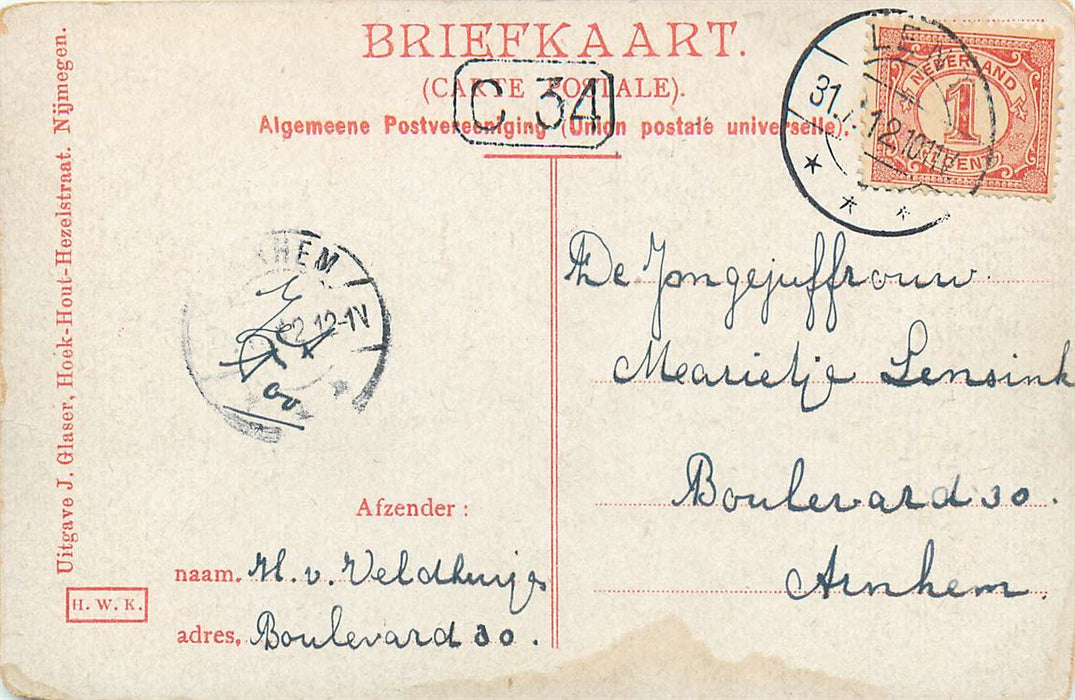 BRIEFKAART.
(CARTE POSTALE).
C 34
Algemeene Postvereeniging (Union postale universelle).
NEDERLAND
1
CENT
LEN
31.1.12.10-11V
De Jongejuffrouw
Marietje Lensink
Boulevard 30.
Arnhem.
HEM
2.12-1V
Afzender:
naam. H. v. Veldhuijs
adres, Boulevard 30.
Uitgave J. Glaser, Hoek-Hout-Hezelstraat. Nijmegen.
H. W. K.